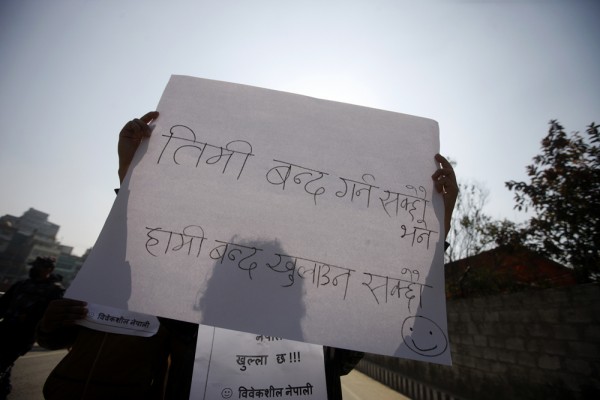 तिमी बन्द गर्न सक्छौ
भने
हामी बन्द खुलाउन सक्छौ
विवेकशील नेपाली
नेपाल
खुल्ला छ!!!
विवेकशील नेपाली